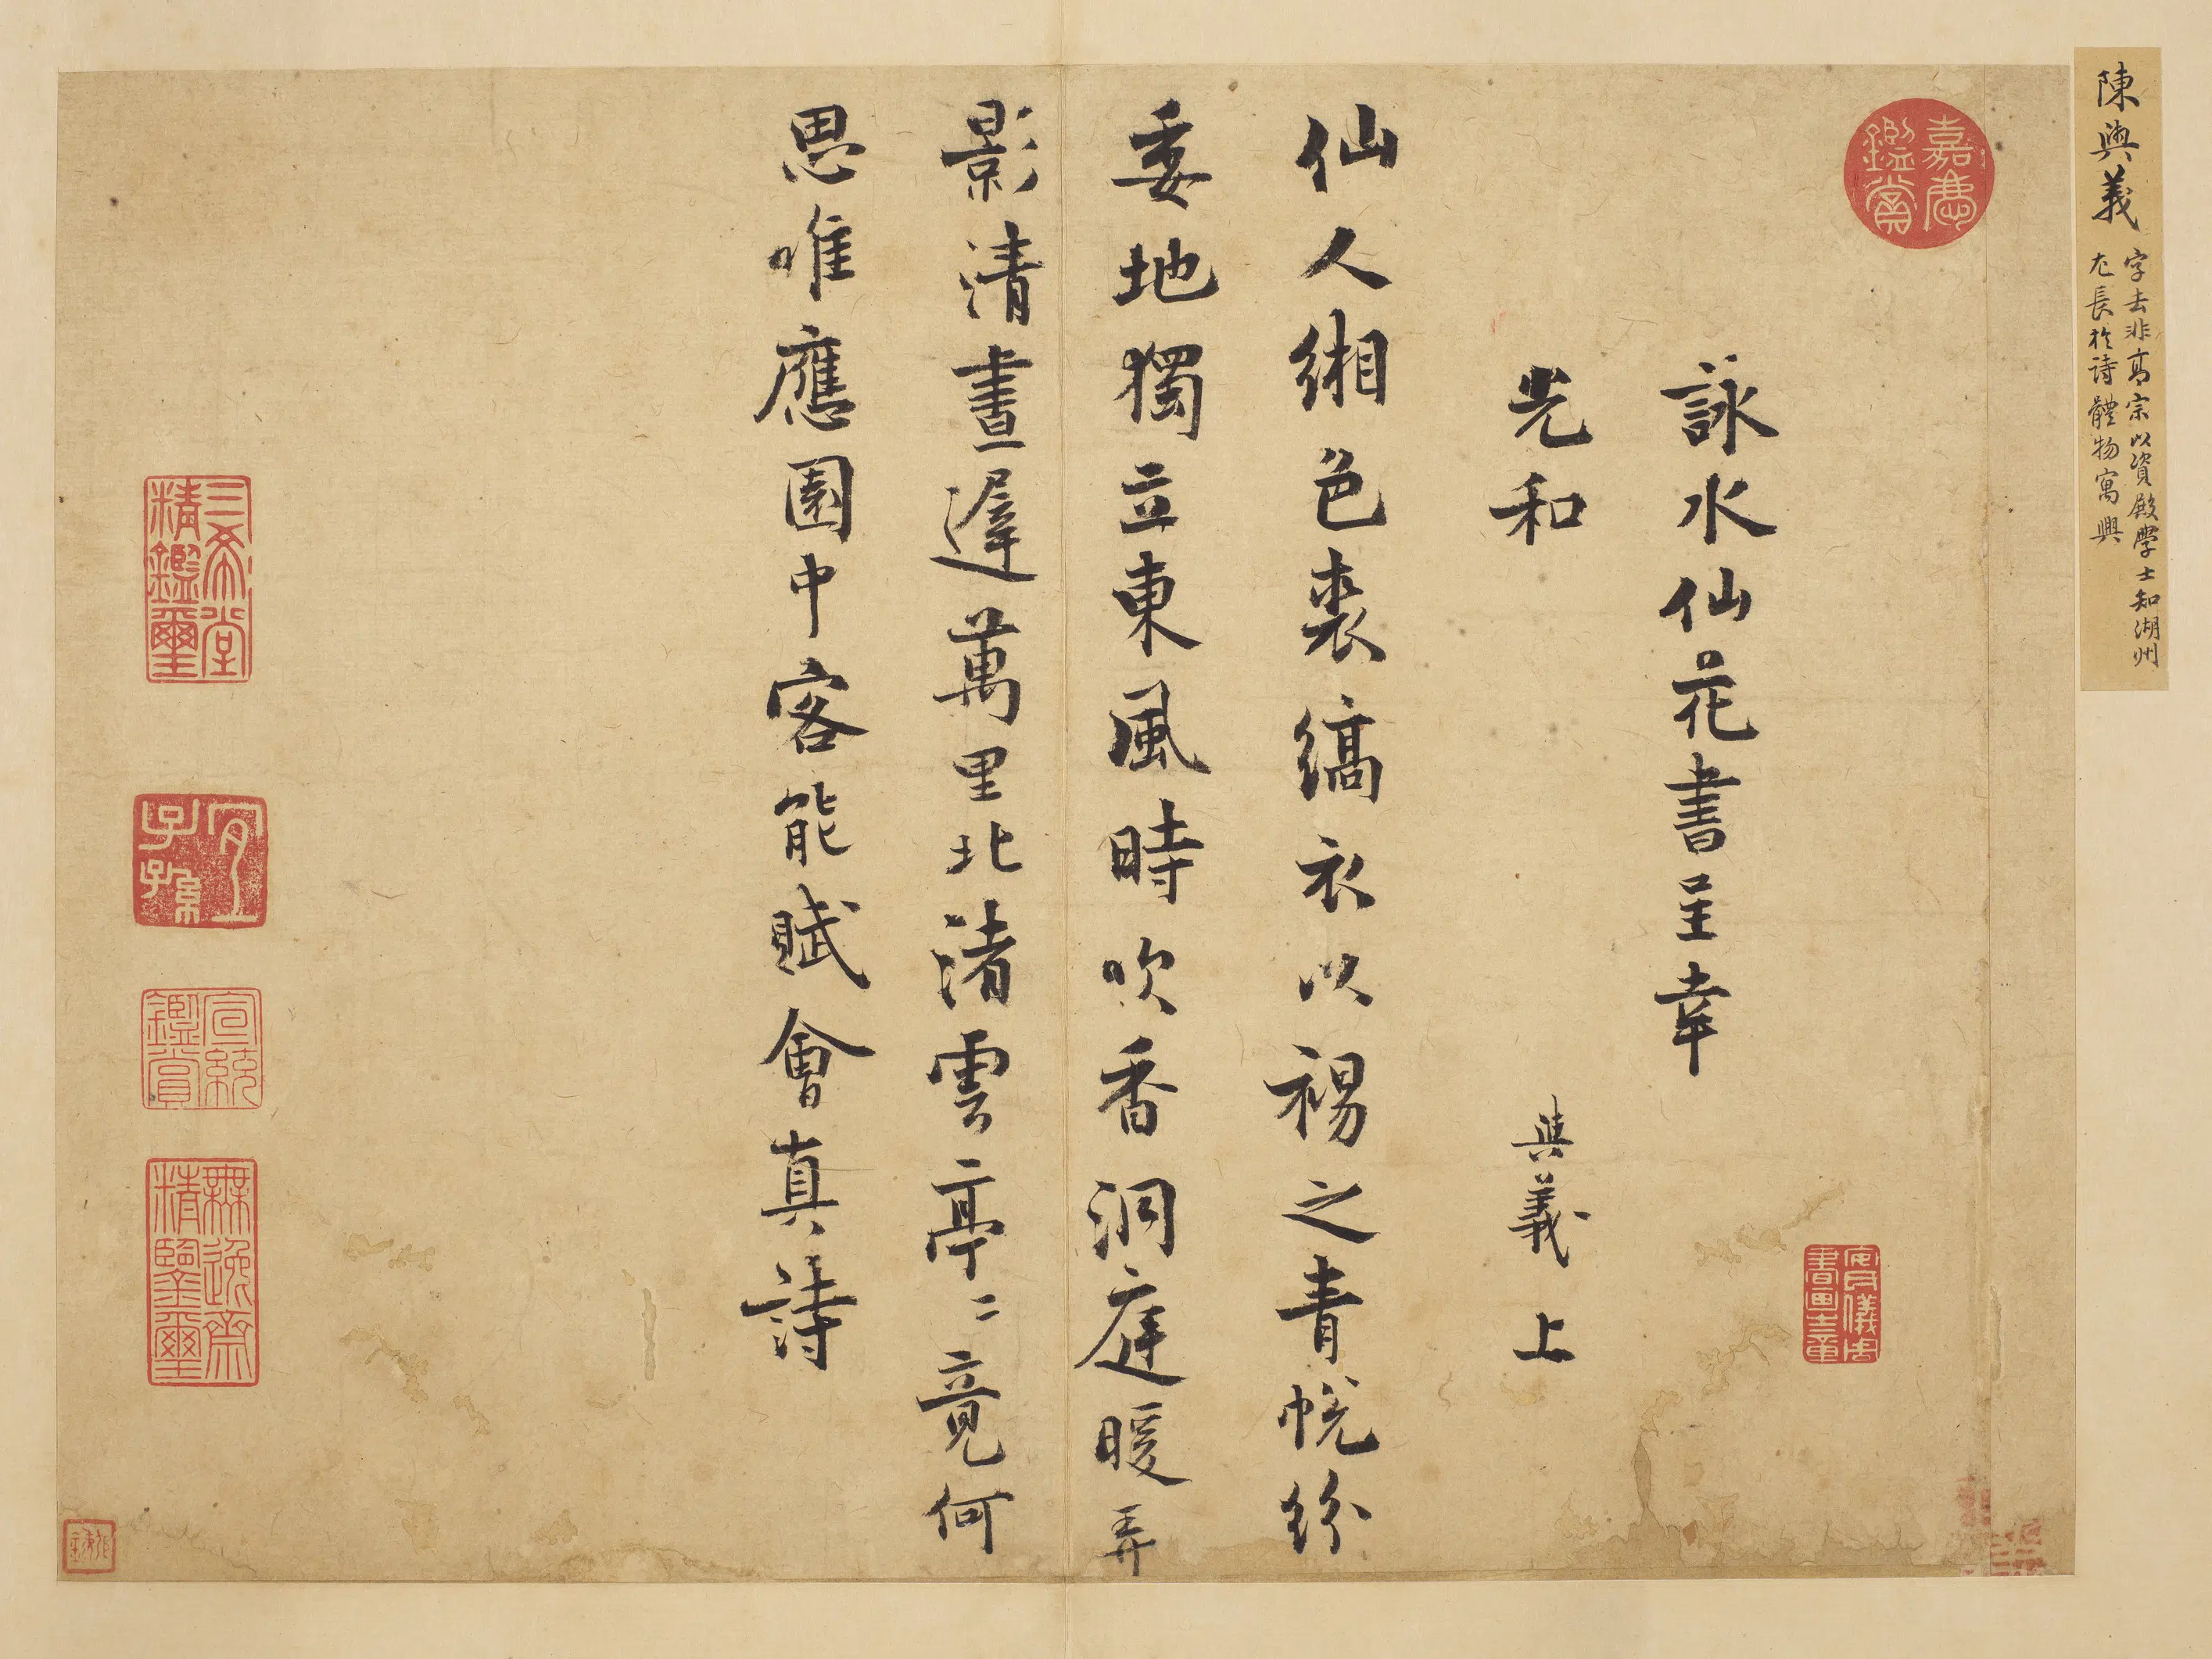 陳與義
字去非高宗以資殿學士知湖州
尤長於詩體物寓興
嘉慶
鑑賞
詠水仙花書呈幸
先和
與義 上
仙人緗色裘縞衣以裼之青帨紛
委地獨立東風時吹香洞庭暖弄
影清晝遲萬里北渚雲亭〻竟何
思唯應園中客能賦會真詩
安儀周
書畫之章
三希堂
精鑑璽
宜
子孫
宣統
鑑賞
無逸齋
精鑒璽